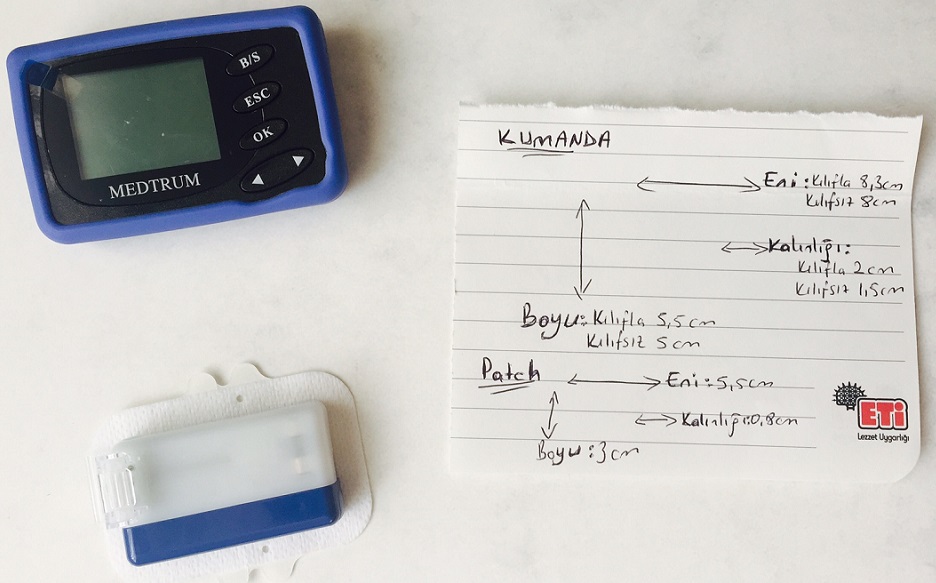 B/S
ESC
OK
MEDTRUM
KUMANDA
Eni: Kılıfla 8,3cm
Kılıfsız 8cm
Kalınlığı:
Kılıfla 2cm
Kılıfsız 1,5cm
Boyu: Kılıfla 5,5cm
Kılıfsız 5cm
Patch
Eni: 5,5cm
Kalınlığı: 0,8cm
Boyu: 3cm
ETi
Lezzet Uygarlığı